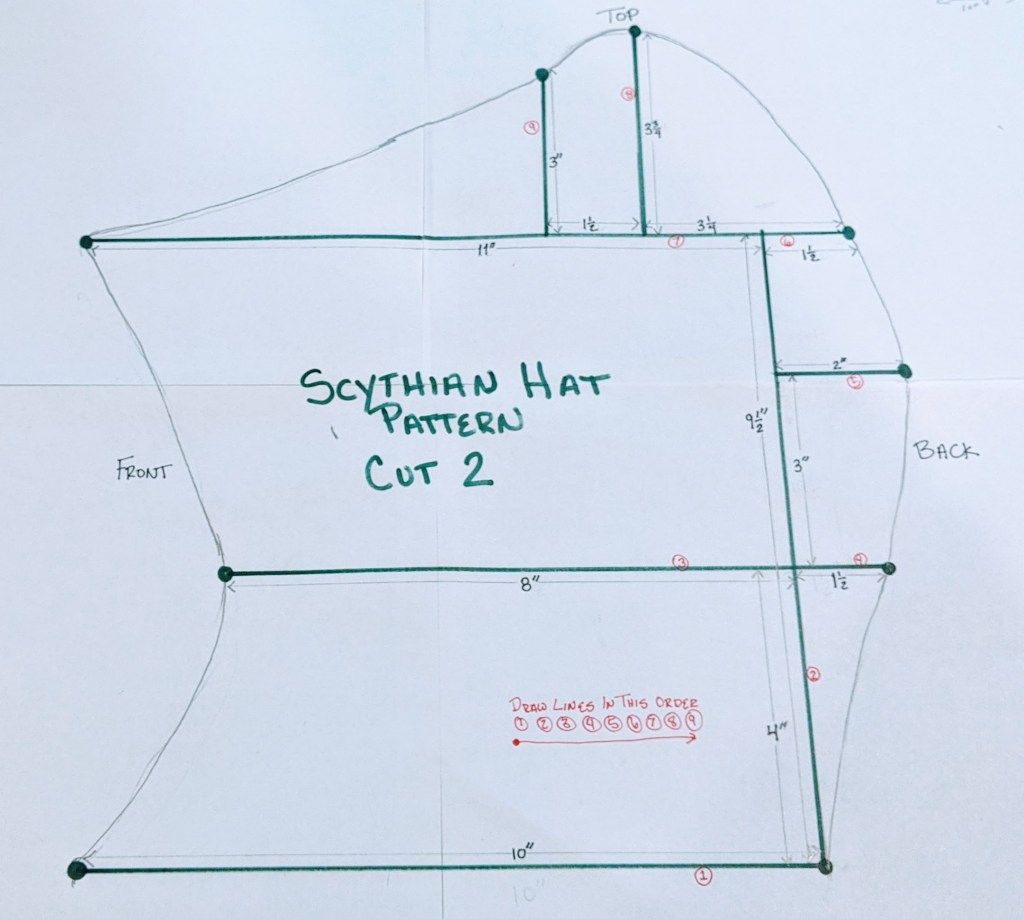 TOP
9
8
3"
3 3/4
1 1/2
3 1/4
7
6
11"
1 1/2
2"
5
SCYTHIAN HAT
PATTERN
CUT 2
9 1/2"
3"
FRONT
BACK
3
4
8"
1 1/2
2
DRAW LINES IN THIS ORDER
1 2 3 4 5 6 7 8 9
4"
10"
1
10"